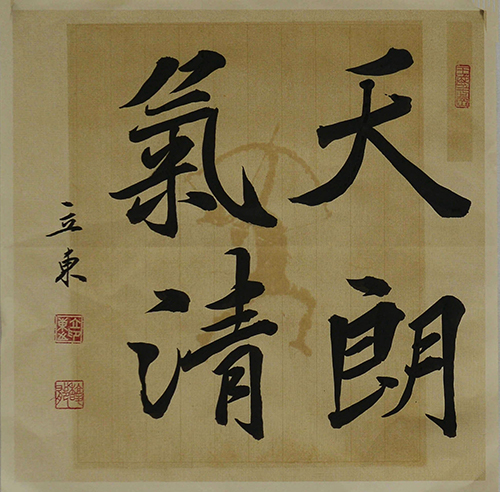 天朗
氣清
立東